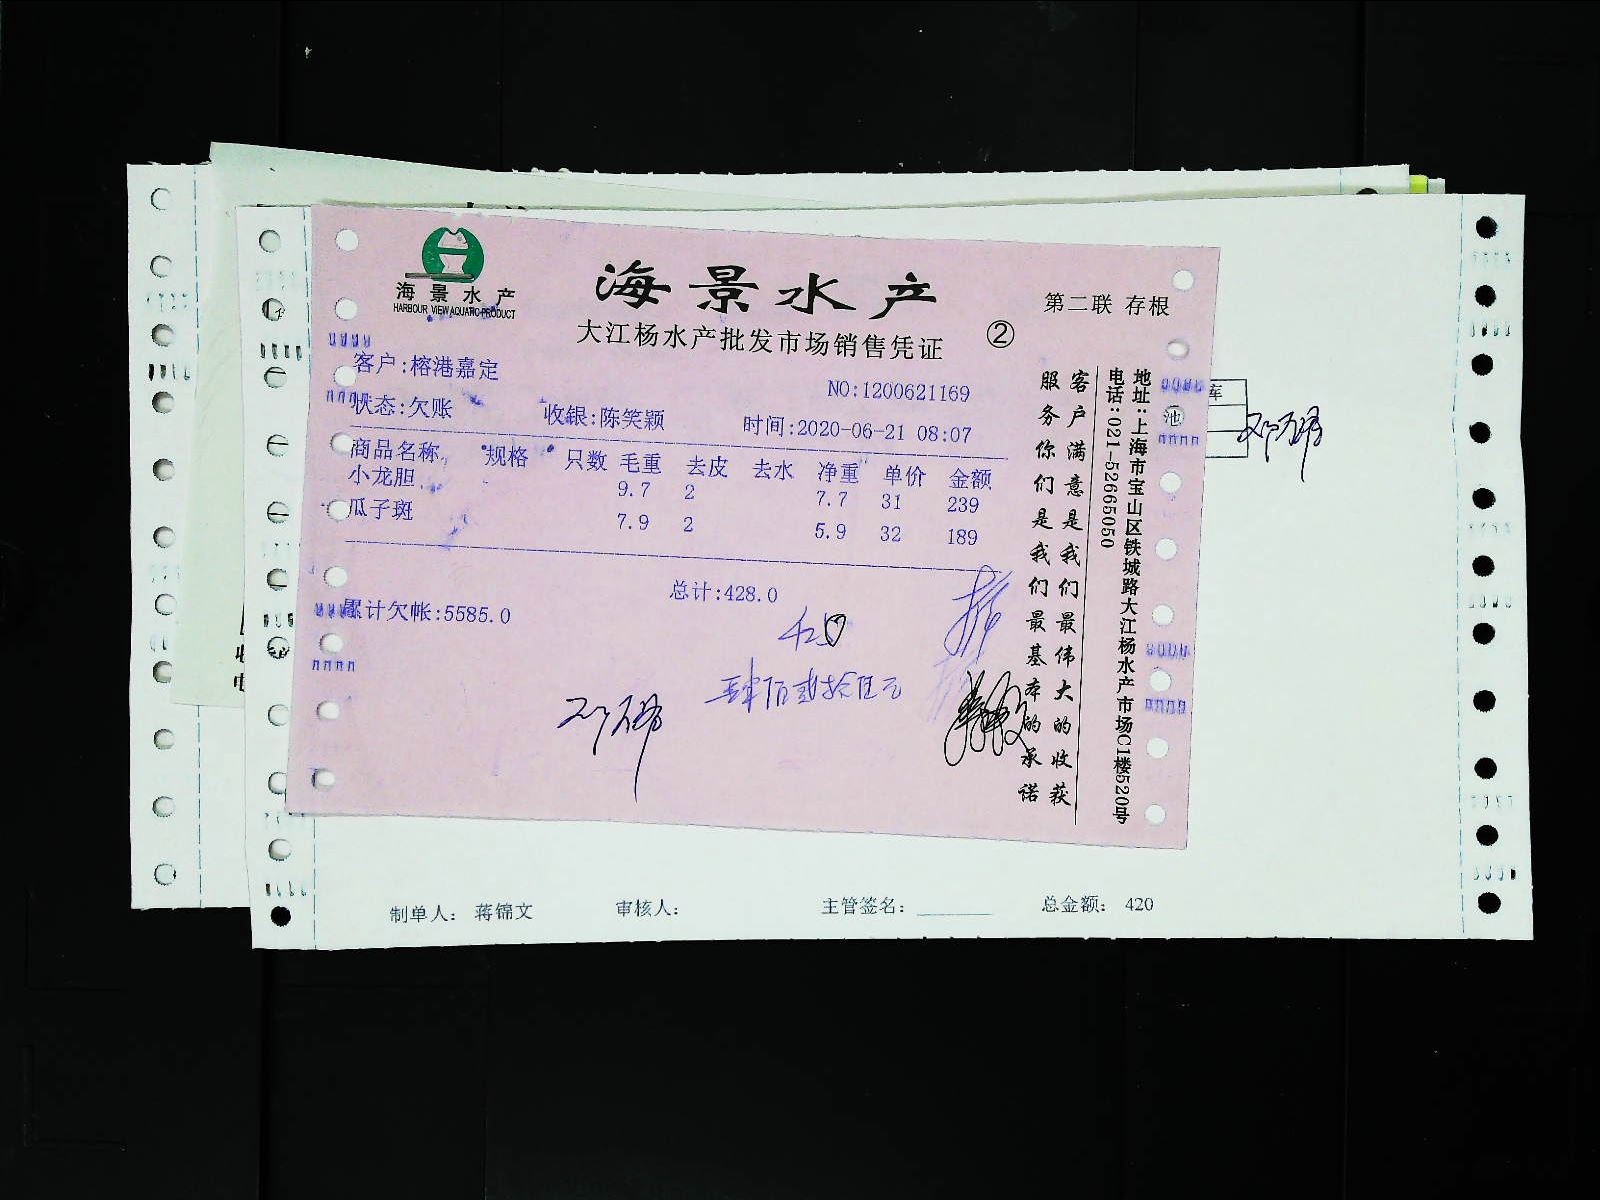 海景水产
HARBOUR VIEW AQUATIC PRODUCT
海景水产
大江杨水产批发市场销售凭证
②
第二联 存根
客户:榕港嘉定
NO:1200621169
状态:欠账 收银:陈笑颖 时间:2020-06-21 08:07
商品名称 规格 只数 毛重 去皮 去水 净重 单价 金额
小龙胆 9.7 2 7.7 31 239
瓜子斑 7.9 2 5.9 32 189
总计:428.0
累计欠帐:5585.0
420
客户满意是我们最伟大的收获
服务你们是我们最基本的承诺
地址:上海市宝山区铁城路大江杨水产市场C1楼520号
电话:021-52665050
库
池
制单人: 蒋锦文 审核人: 主管签名: 总金额: 420